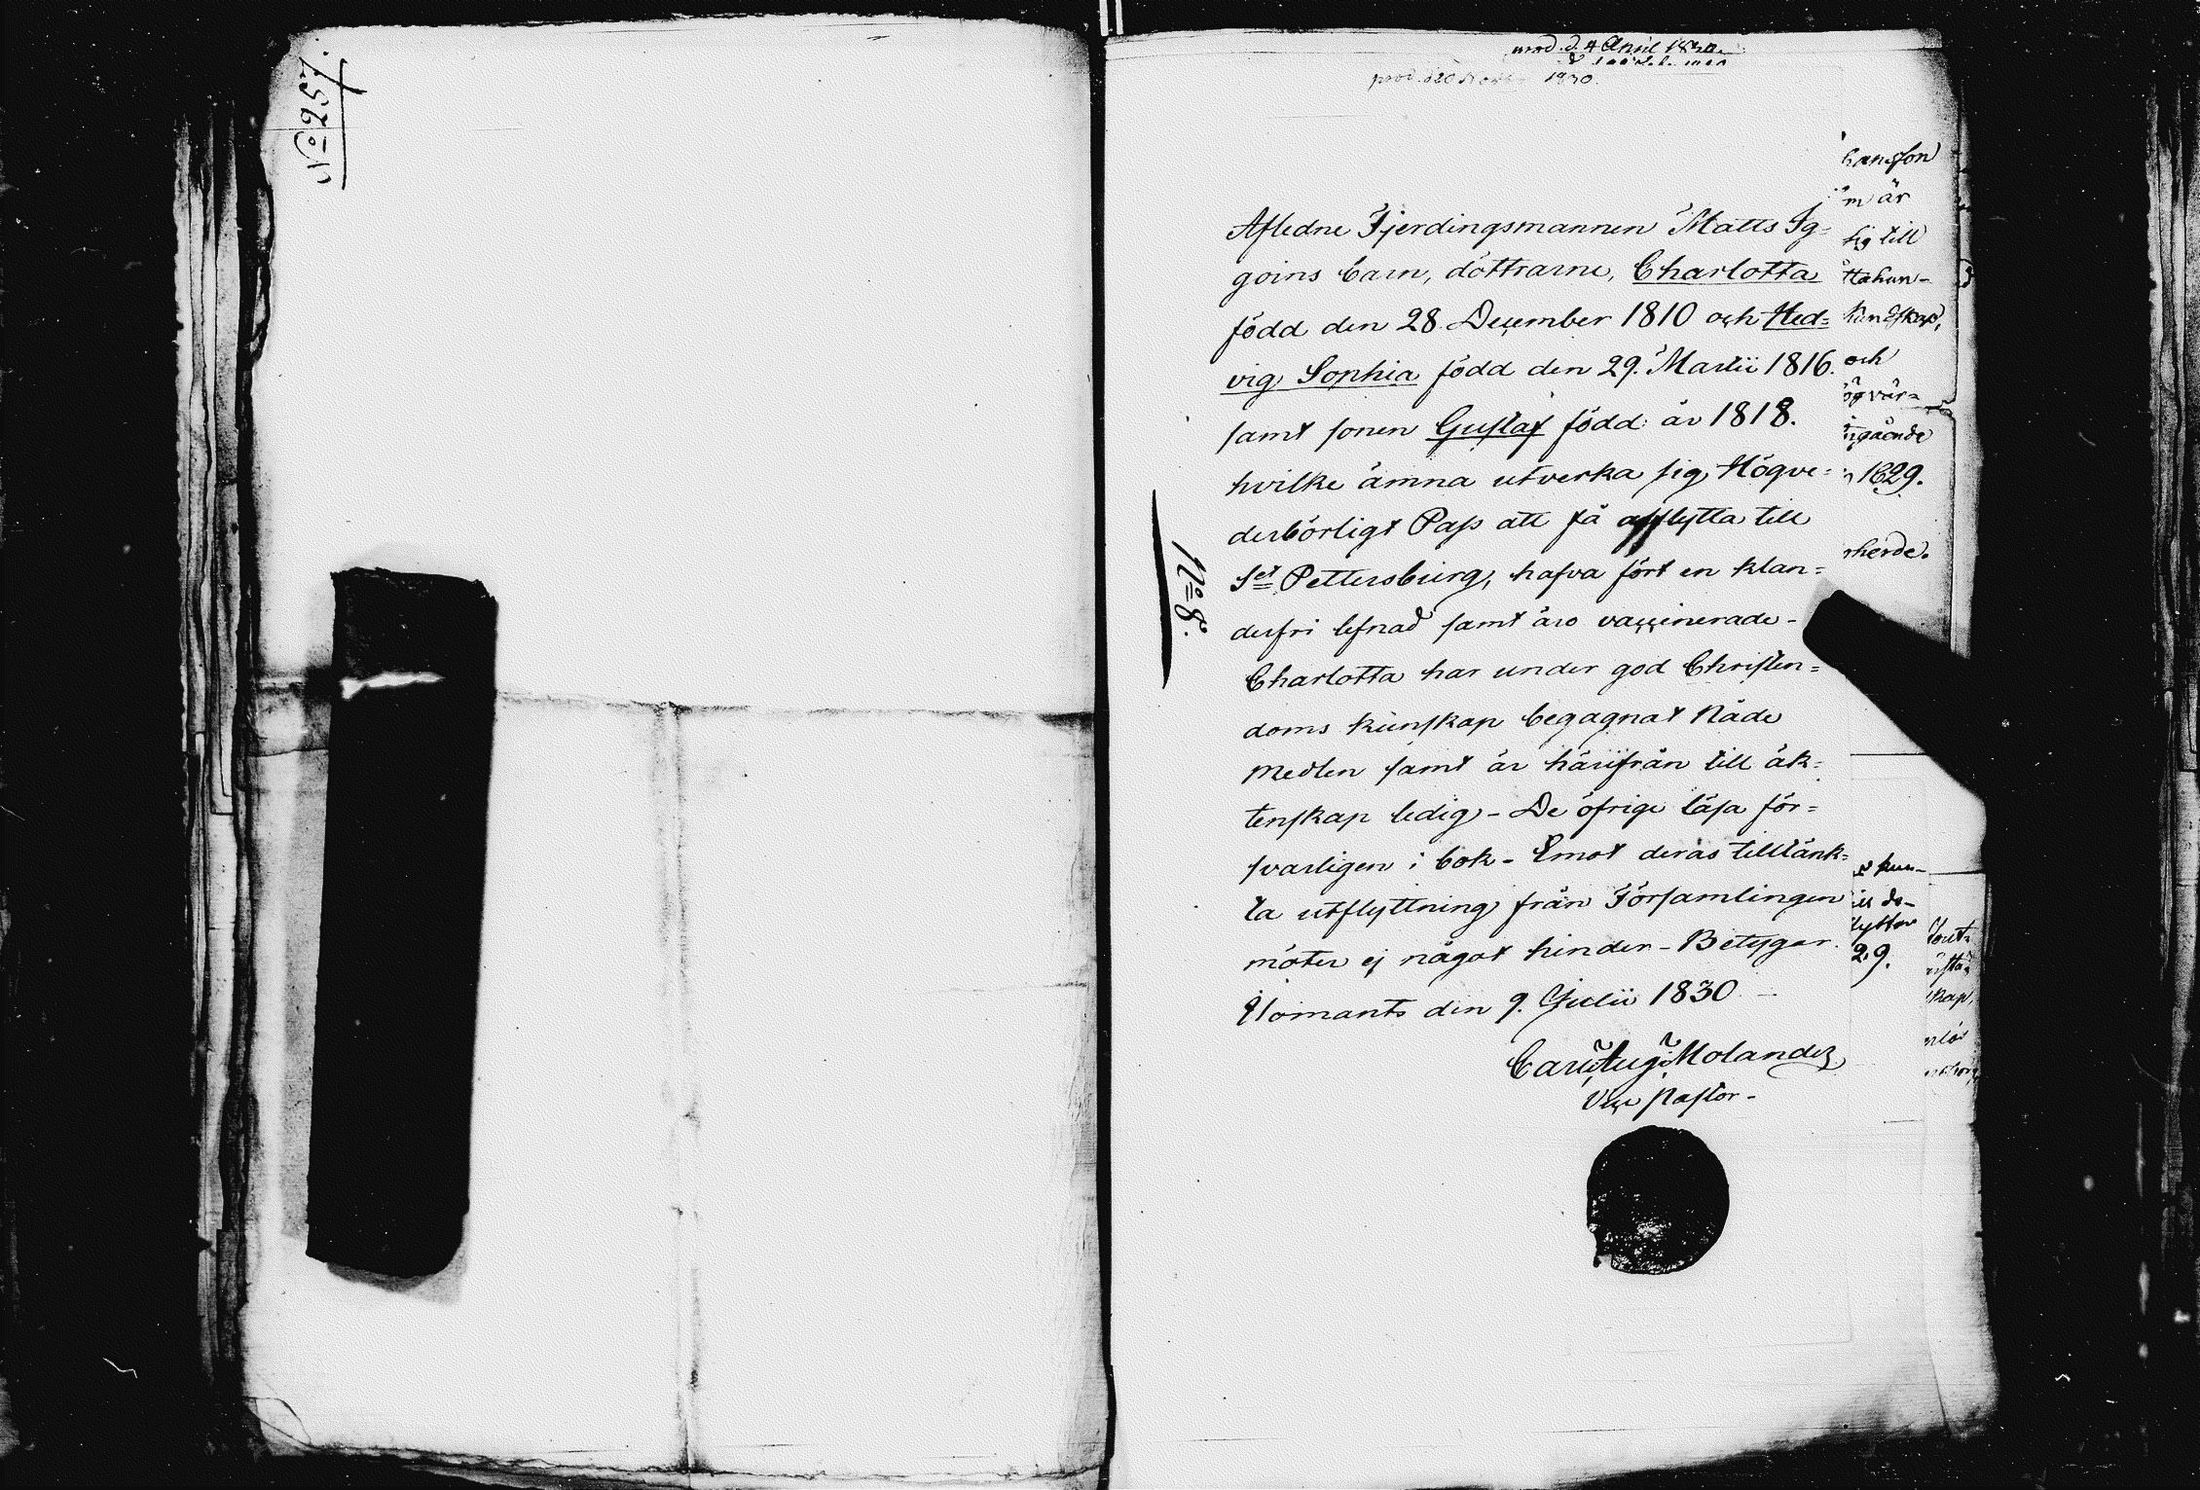 No 257.
prod. d. 4 April 1830.
prod. d 20 1830.
No 8.
Afledne Fjerdingsmannen Matts Ig=
goins barn, döttrarne, Charlotta
född den 28 December 1810 och Hed=
vig Sophia född den 29. Martii 1816.
samt sonen Gustaf född år 1818.
hvilke ämna utverka sig Högve=
derbörligt Pass att få afflytta till
Set Pettersburg, hafva fört en klan=
derfri lefnad samt äro vaccinerade -
Charlotta har under god Christen=
doms kunskap begagnat Nåde
medlen samt är härifrån till äk=
tenskap ledig - De öfrige läsa för=
svarligen i bok - Emot deras tilltänk=
ta utflyttning från Församlingen
möter ej något hinder - Betygar.
Ilomants den 9. Julii 1830 -
Carl Aug. Molander
Vice Pastor -
hansson
m är
sig till
ttahun-
kunskap,
och
ögvör=
ngående
1829.
rherde.
kun-
ds-
lyttar
29.